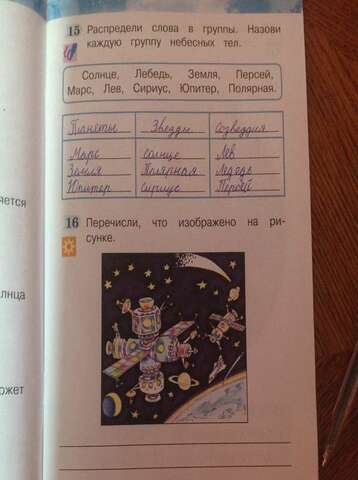 15 Распредели слова в группы. Назови
каждую группу небесных тел.
Солнце, Лебедь, Земля, Персей,
Марс, Лев, Сириус, Юпитер, Полярная.
Планеты Звезды Созвездия
Марс солнце Лев
Земля Полярная Лебедь
Юпитер сириус Персей
16 Перечисли, что изображено на ри-
сунке.
яется
лнца
ожет